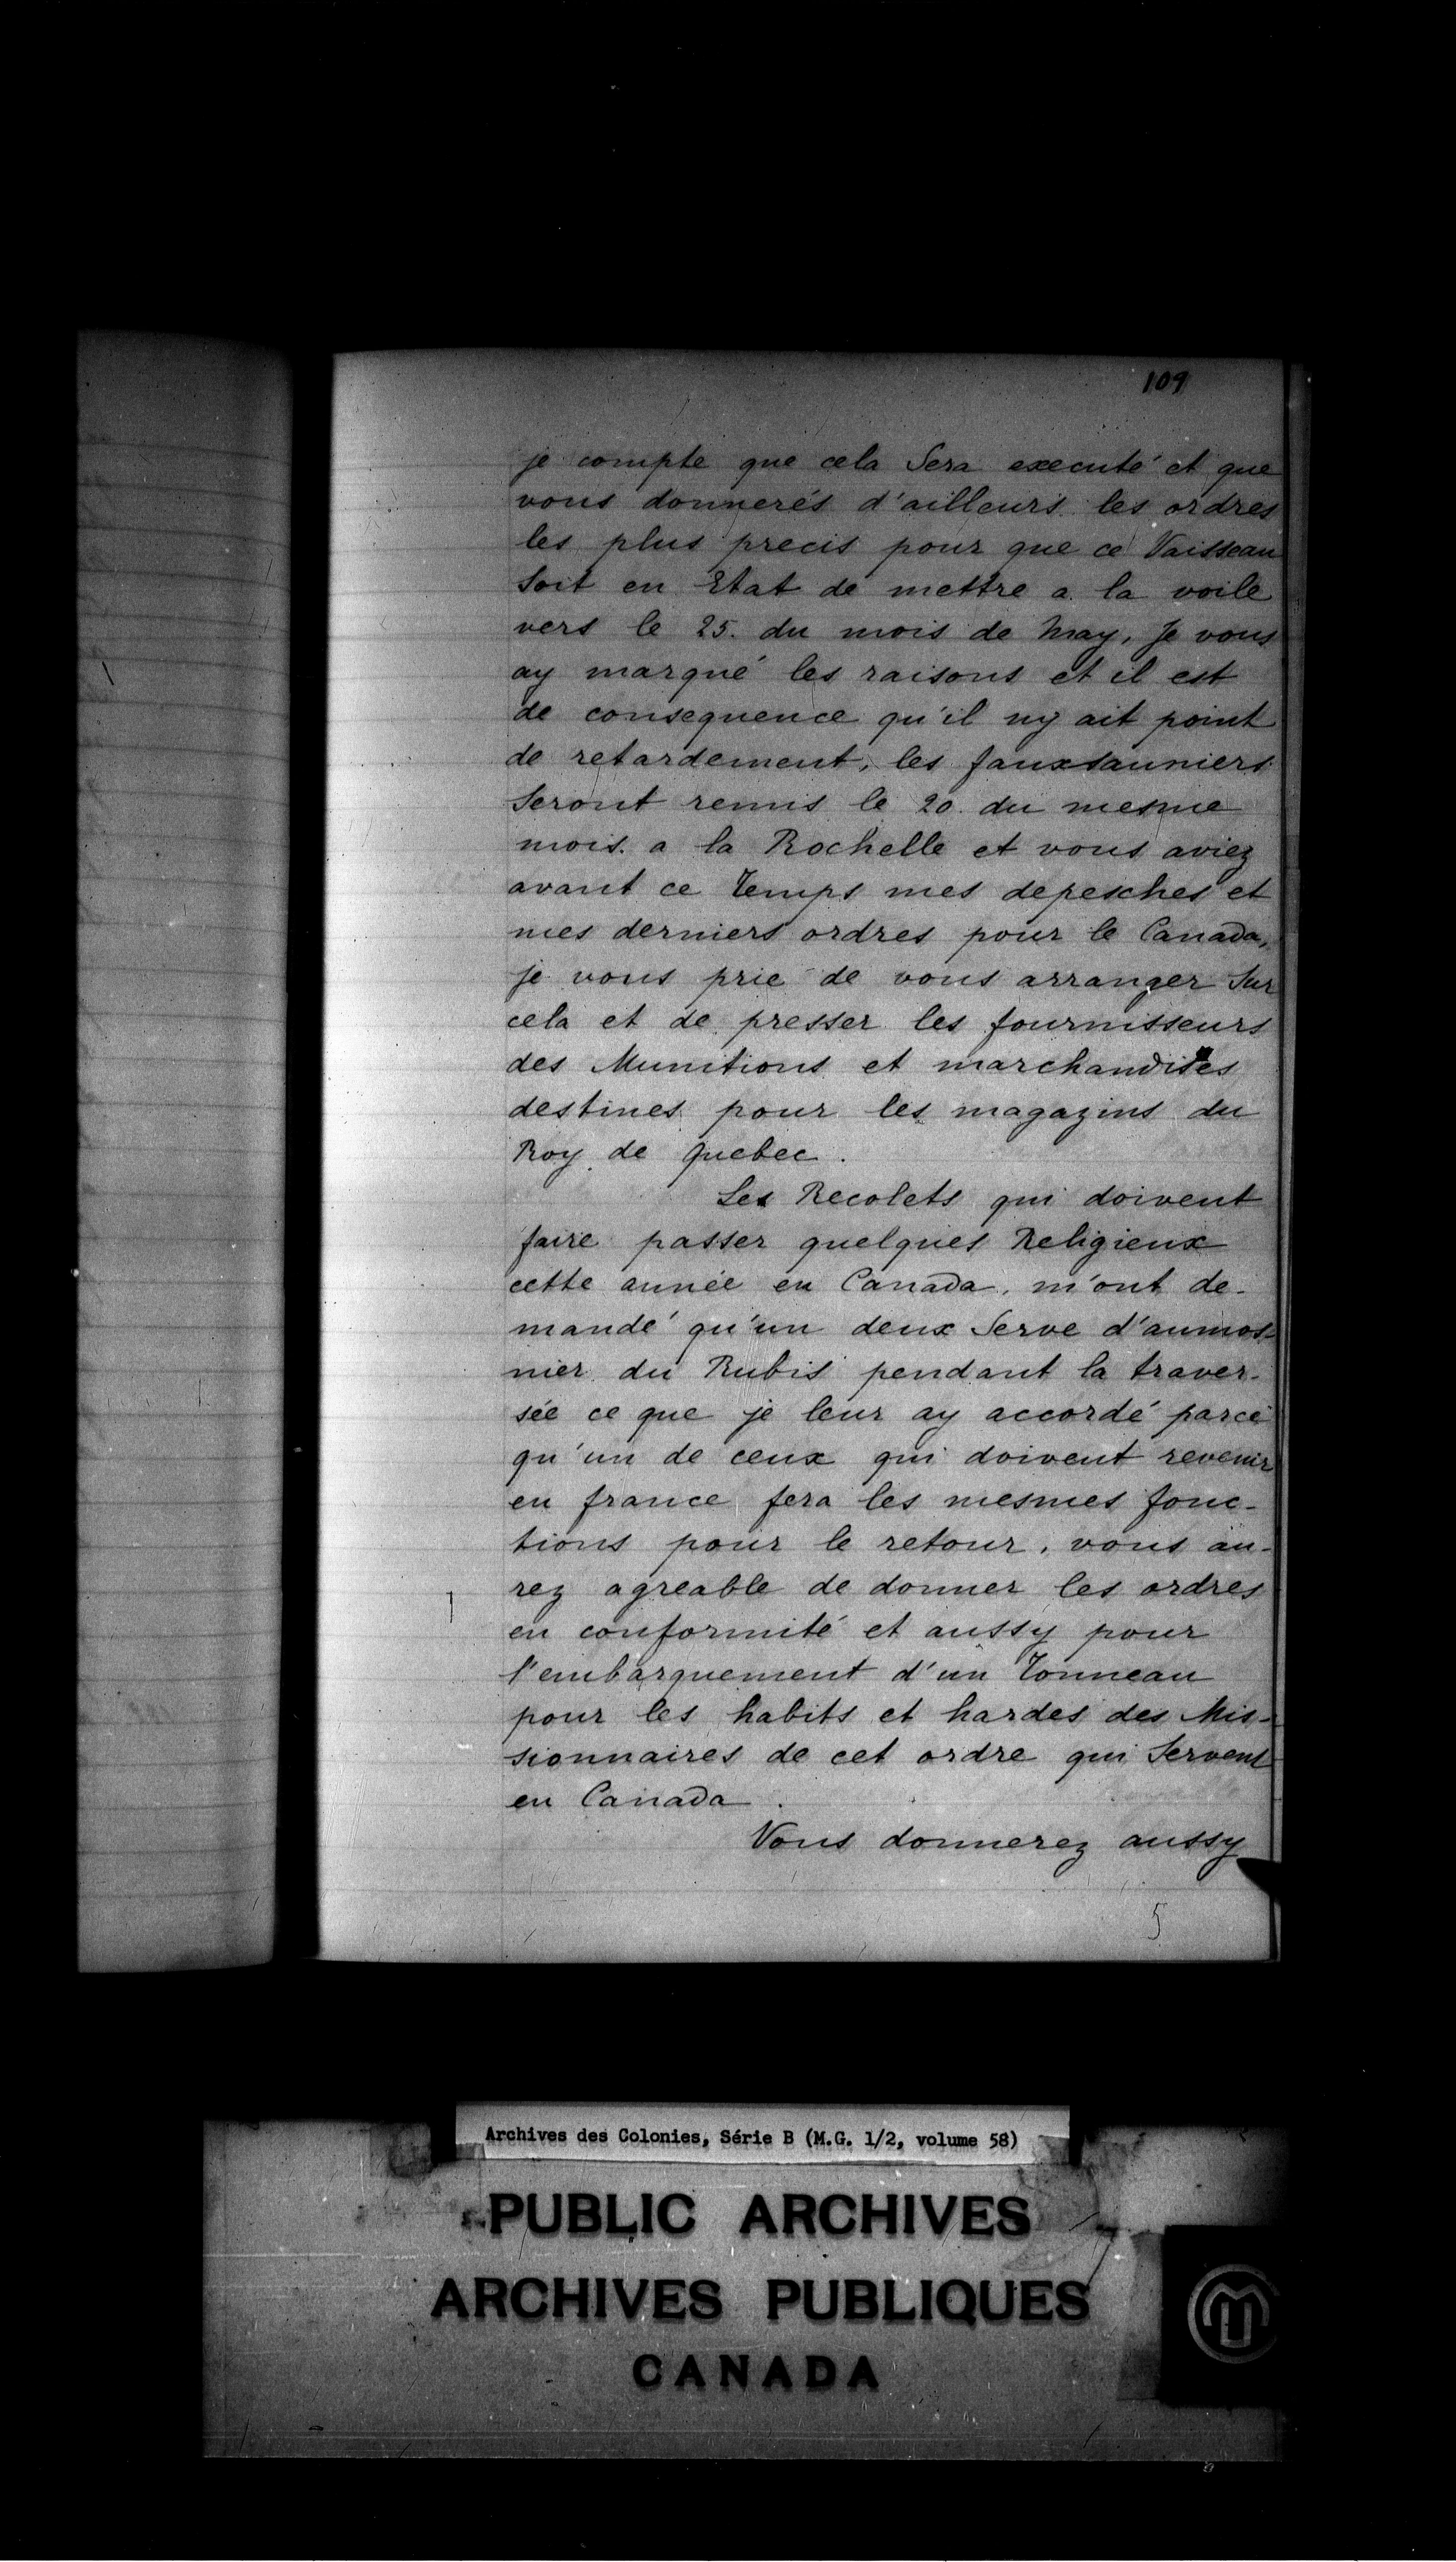 109
je compte que cela Sera executé et que
vous donnerés d'ailleurs les ordres
les plus precis pour que ce Vaisseau
Soit en Etat de mettre a la voile
vers le 25. du mois de May, Je vous
ay marqué les raisons et il est
de consequence qu'il ny ait point
de retardement, les fauxsauniers
Seront remis le 20. du mesme
mois a la Rochelle et vous aviez
avant ce Temps mes depesches et
mes derniers ordres pour le Canada,
je vous prie de vous arranger Sur
cela et de presser les fournisseurs
des Munitions et marchandises
destines pour les magazins du
Roy de Quebec.
Les Recolets qui doivent
faire passer quelques Religieux
cette année en Canada, m'ont de-
mandé qu'un deux Serve d'aumos-
nier du Rubis pendant la traver-
sée ce que je leur ay accordé parce
qu'un de ceux qui doivent revenir
en france fera les mesmes fonc-
tions pour le retour, vous au-
rez agreable de donner les ordres
en conformité et aussy pour
l'embarquement d'un Tonneau
pour les habits et hardes des Mis-
sionnaires de cet ordre qui Servent
en Canada.
Vous donnerez aussy
5
Archives des Colonies, Série B (M.G. 1/2, volume 58)
PUBLIC ARCHIVES
ARCHIVES PUBLIQUES
CANADA